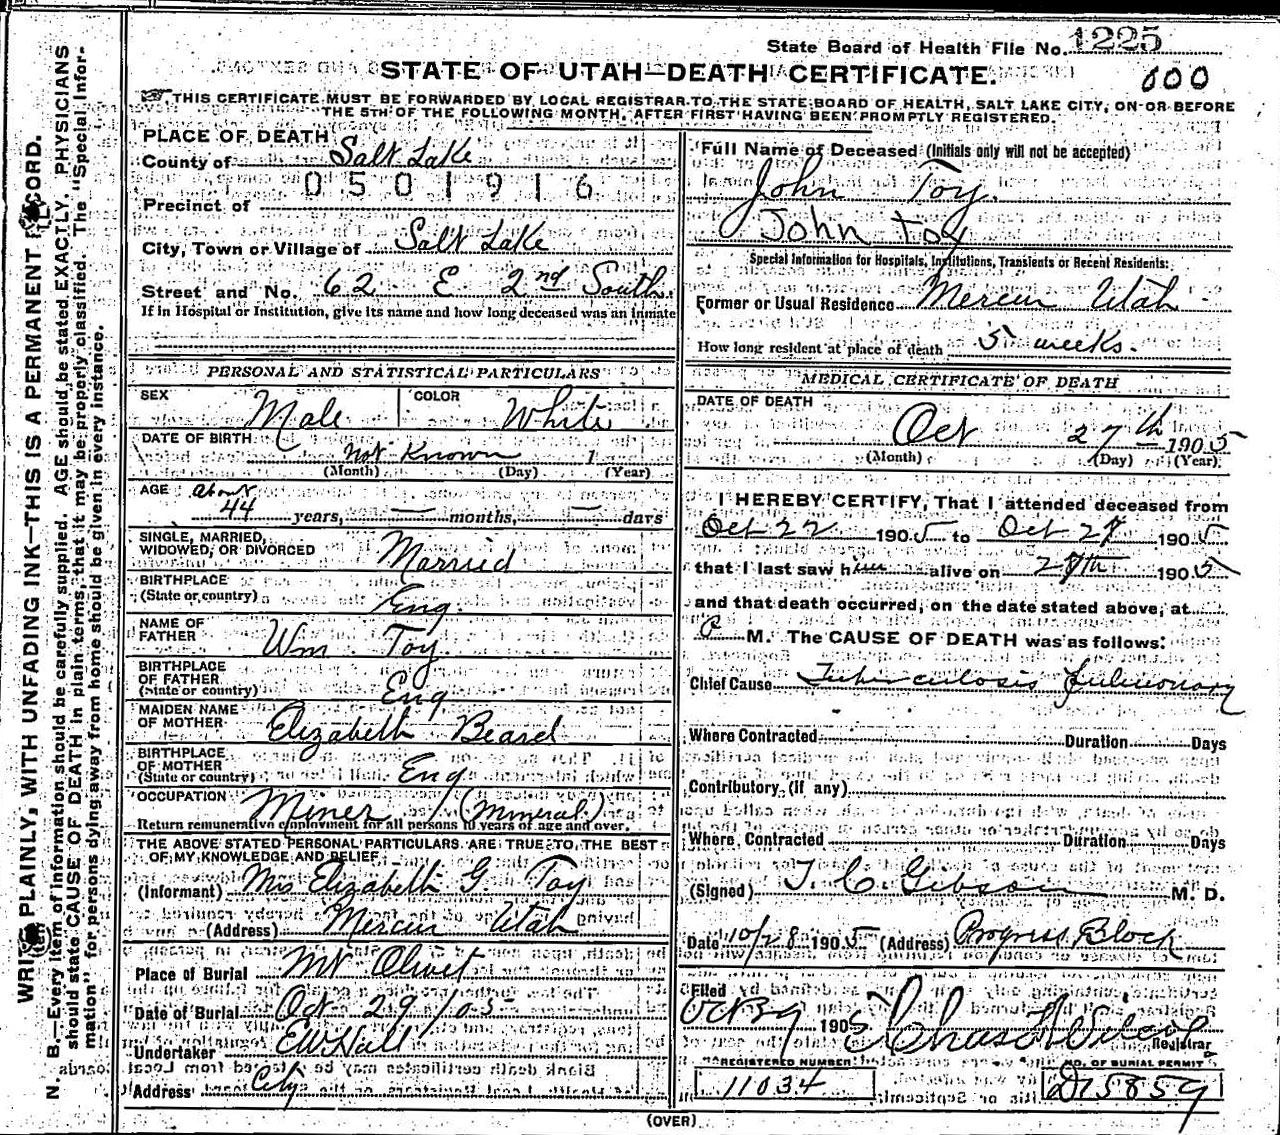 State Board of Health File No. 1225
STATE OF UTAH—DEATH CERTIFICATE.
600
THIS CERTIFICATE MUST BE FORWARDED BY LOCAL REGISTRAR TO THE STATE BOARD OF HEALTH, SALT LAKE CITY, ON OR BEFORE
THE 5TH OF THE FOLLOWING MONTH, AFTER FIRST HAVING BEEN PROMPTLY REGISTERED.
WRITE PLAINLY, WITH UNFADING INK—THIS IS A PERMANENT RECORD.
N. B.—Every item of information should be carefully supplied. AGE should be stated EXACTLY. PHYSICIANS
should state CAUSE OF DEATH in plain terms, that it may be properly classified. The "Special Infor-
mation" for persons dying away from home should be given in every instance.
PLACE OF DEATH
County of Salt Lake
0501916
Precinct of
City, Town or Village of Salt Lake
Street and No. 62 E 2nd South.
If in Hospital or Institution, give its name and how long deceased was an inmate
PERSONAL AND STATISTICAL PARTICULARS
SEX Male COLOR White
DATE OF BIRTH Not Known 1
(Month) (Day) (Year)
AGE About
44 years, — months, — days
SINGLE, MARRIED,
WIDOWED, OR DIVORCED Married
BIRTHPLACE
(State or country) Eng.
NAME OF
FATHER Wm Toy.
BIRTHPLACE
OF FATHER
(State or country) Eng
MAIDEN NAME
OF MOTHER Elizabeth Beard
BIRTHPLACE
OF MOTHER
(State or country) Eng
OCCUPATION Miner (Mineral)
Return remunerative employment for all persons 10 years of age and over.
THE ABOVE STATED PERSONAL PARTICULARS ARE TRUE TO THE BEST
OF MY KNOWLEDGE AND BELIEF
(Informant) Mrs Elizabeth G Toy
(Address) Mercur Utah
Place of Burial Mt Olivet
Date of Burial Oct 29/05
Undertaker E W Hall
Address City
Full Name of Deceased (Initials only will not be accepted)
John Toy.
John Toy
Special Information for Hospitals, Institutions, Transients or Recent Residents:
Former or Usual Residence Mercur Utah
How long resident at place of death 5 weeks.
MEDICAL CERTIFICATE OF DEATH
DATE OF DEATH
Oct 27th 1905
(Month) (Day) (Year)
I HEREBY CERTIFY, That I attended deceased from
Oct 22 1905 to Oct 27 1905
that I last saw him alive on 27th 1905
and that death occurred, on the date stated above, at
P M. The CAUSE OF DEATH was as follows:
Chief Cause Tuberculosis Pulmonary
Where Contracted Duration Days
Contributory (if any)
Where Contracted Duration Days
(Signed) T. C. Gibson M. D.
Date 10/28 1905 (Address) Progress Block
Filed
1905 Chas Registrar
REGISTERED NUMBER NO. OF BURIAL PERMIT
11034 D15859
(OVER)